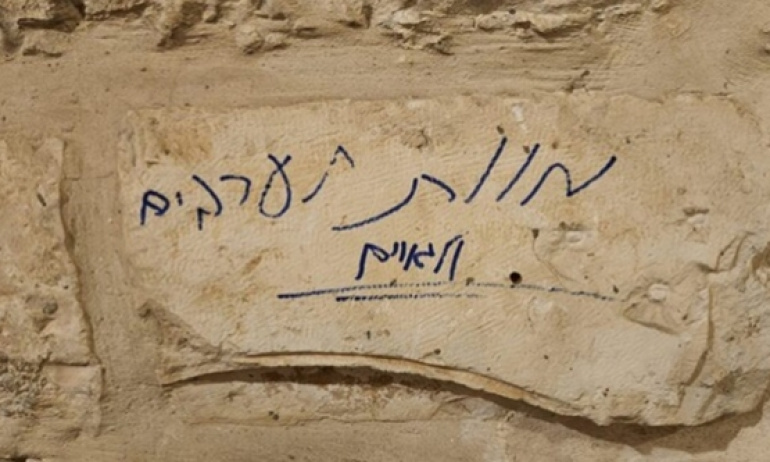 מוות לערבים
ולגוים